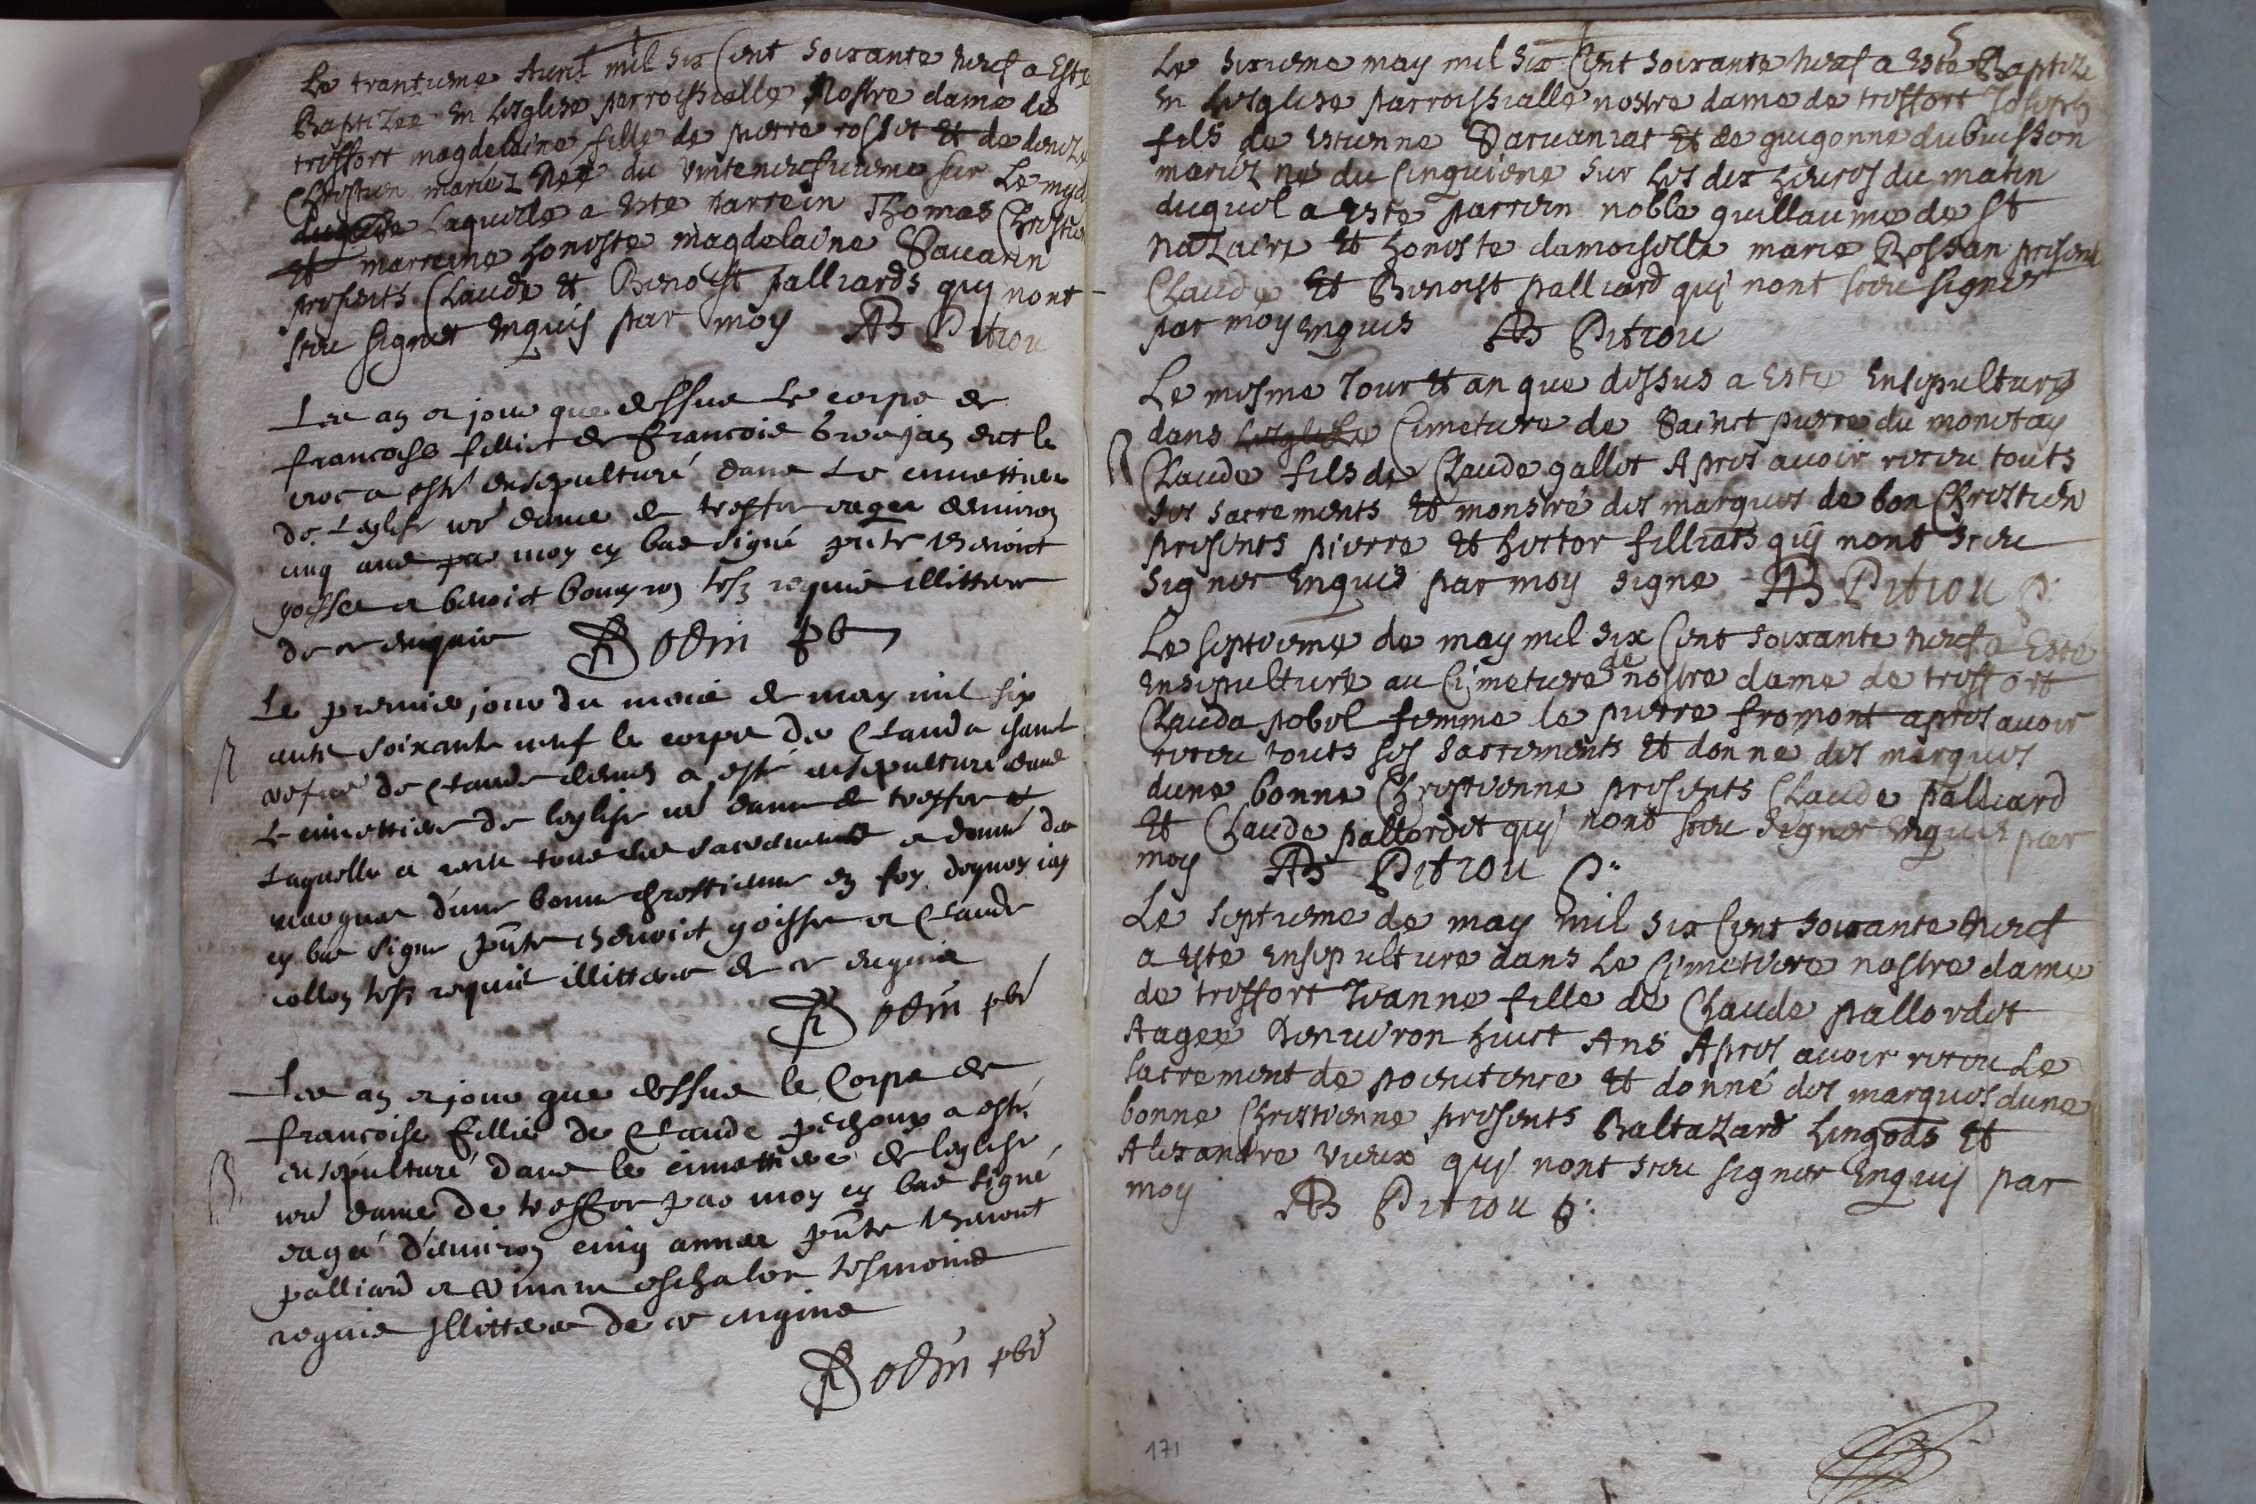 Le trantieme Avril mil six Cent soixante neuf a Este
Baptizee en Lesglise parroissialle Nostre dame de
treffort magdelaine fille de pierre rosset Et de denize
Chrestien mariez Née du vinteneufvieme sur Le mydi
Laquelle a este parrein Thomas Chrestien
et marreine honeste magdelaine Savarin
presents Claude et Benoist palliards quy nont
sceu signer enquis par moy AB Pitiou
Les an et jour que dessus Le corps de
francoise fillie de francois
a esté ensepulturé dans Le cimettiere
de Leglise nre dame de treffor eagee denviron
cinq ans par moy cy bas signé pnts Benoict
goisset et benoict tesm requis illitteres
de ce enquis Bodin pbre
Le premier jour du mois de may mil six
cents soixante neuf le corps de Clauda
vefve de Claude a esté ensepulturé dans
Le cimettiere de leglise nre dame de treffor et
Laquelle a receu tous les sacrements et donné des
marques d'une bonne chrestienne en foy dequoy iay
cy bas signe pnts benoict goisset et Claude
collon tesm requis illitteres de ce enquis
Bodin pbre
Les an et jour que dessus le Corps de
francoise fillie de Claude pechoux a esté
ensepulturé dans le cimettiere de leglise
nre dame de treffor par moy cy bas signé
eagé d'environ cinq annees pnts Benoict
palliard et tesmoins
requis illitteres de ce enquis
Bodin pbre
Le sixieme may mil six Cent soixante neuf a este Baptize
en Lesglise parroissialle nostre dame de treffort Joseph
fils de estienne Savarniat Et de guigonne dubuisson
mariez né du Cinquiene sur Les dix heures du matin
duquel a este parrein noble guillaume de St
Nazaire Et honeste damoiselle marie Rossan presens
Claude Et Benoist palliard quy nont sceu signer
par moy enquis AB Pitiou
Le mesme Jour Et an que dessus a Este Ensepulture
dans Lesglise Cimetiere de Sainct pierre du monetay
Claude fils de Claude gallet Apres avoir receu touts
ses sacrements Et monstré des marques de bon Chrestien
presents pierre Et hector filliats quy nont sceu
signer enquis par moy signe AB Pitiou p:
Le septieme de may mil six Cent soixante neuf a Esté
ensepulture au Cimetiere de nostre dame de treffort
Clauda pobel femme le pierre fromont apres avoir
receu touts ses sacrements Et donne des marques
dune bonne Chrestienne presents Claude palliard
Et Claude pallordet quy nont sceu signer enquis par
moy AB Pitiou p:
Le septieme de may mil six Cent soixante neuf
a este ensepulture dans Le Cimetiere nostre dame
de treffort Jeanne fille de Claude pallordet
Aagee denviron huict Ans Apres avoir receu Le
sacrement de poenitence Et donné des marques dune
bonne Chrestienne presents Baltazard Lingods Et
Alexandre vieux quy nont sceu signer Enquis par
moy AB Pitiou p:
171